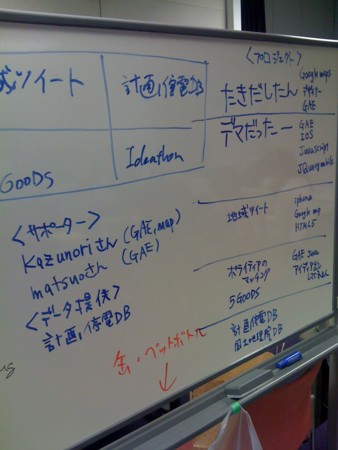 域ツイート
計画停電DB
GOODS
Ideathon
<サポーター>
Kazunoriさん (GAE, map)
matsuoさん (GAE)
<データ提供>
計画停電DB
缶・ペットボトル
↓
<プロジェクト>
たきだしたん
Google maps
デザイナー
GAE
デマだったー
GAE
IOS
Javascript
JQuery mobile
地域ツイート
iphone
Google map
HTML5
ボランティアの
マッチング
GAE Java
5GOODS
計画停電DB